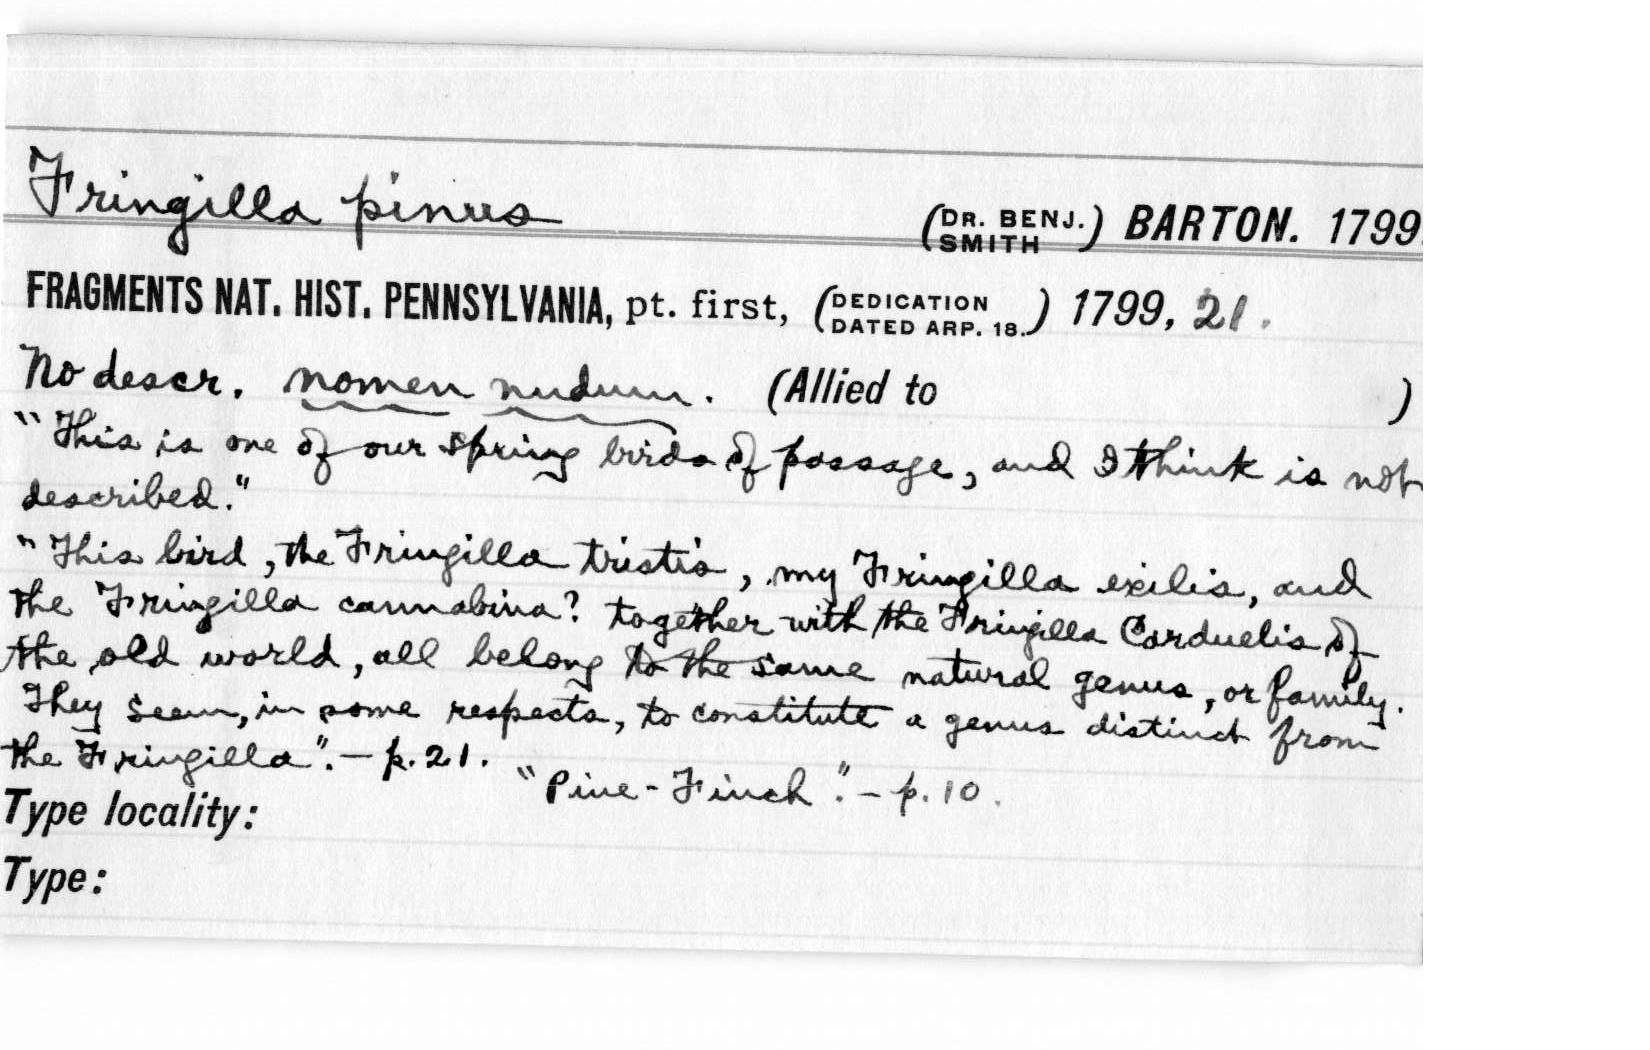 Fringilla pinus (DR. BENJ. SMITH) BARTON. 1799.
FRAGMENTS NAT. HIST. PENNSYLVANIA, pt. first, (DEDICATION DATED ARP. 18.) 1799, 21.
No descr. nomen nudum. (Allied to )
"This is one of our spring birds of passage, and I think is not
described."
"This bird, the Fringilla tristis, my Fringilla exilis, and
the Fringilla cannabina? together with the Fringilla Carduelis of
the old world, all belong to the same natural genus, or family.
They seem, in some respects, to constitute a genus distinct from
the Fringilla". — p. 21.
"Pine-Finch". — p. 10.
Type locality:
Type: